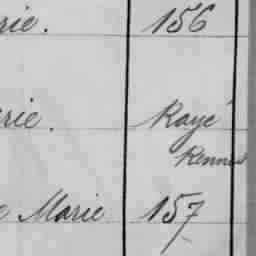 rie. 156
rie. Rayé
Rennes
e Marie 157